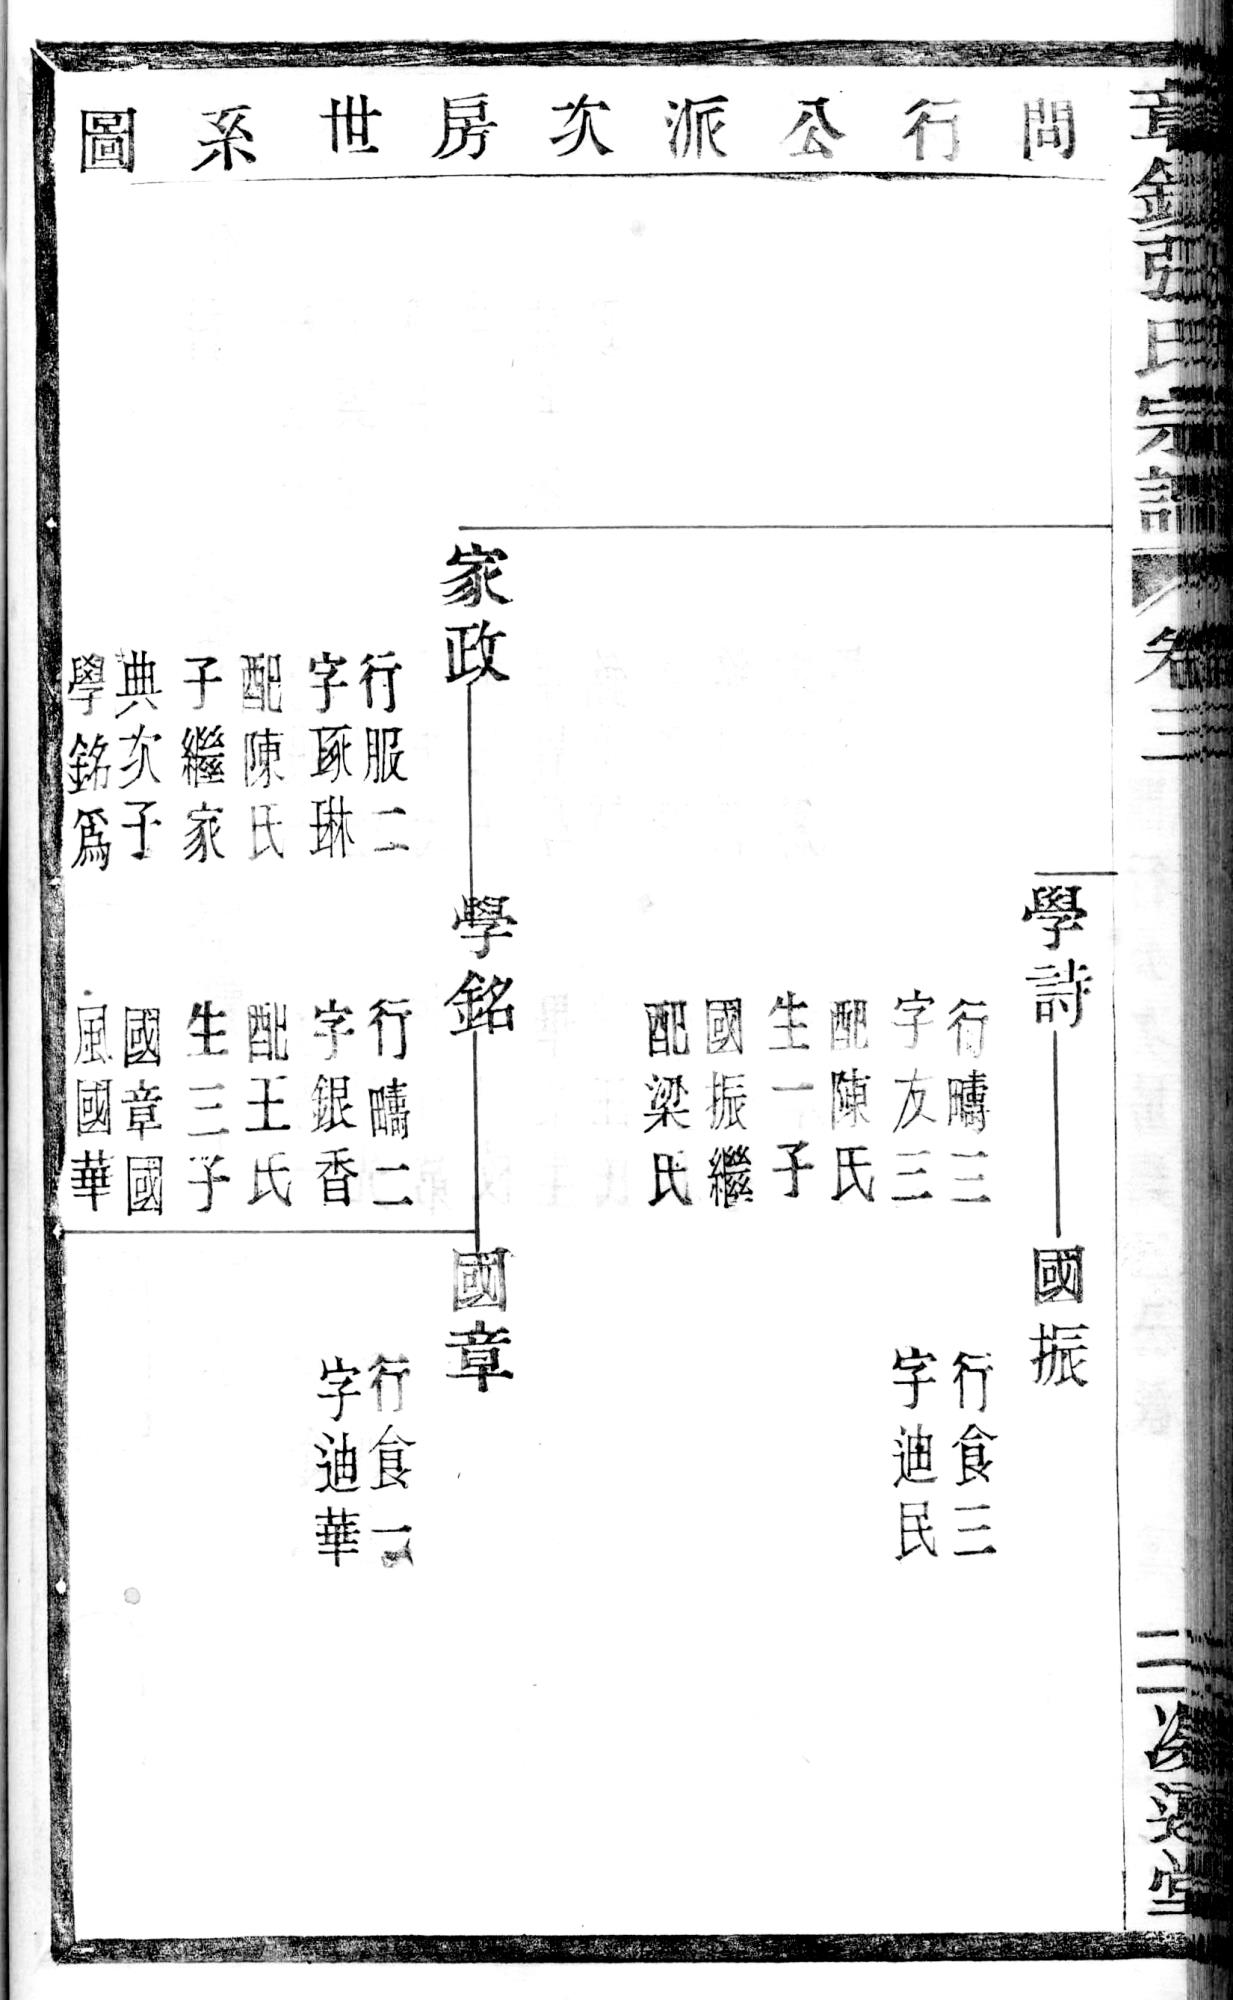 章鎮張氏宗譜
卷三
二
問行公派次房世系圖
學詩
行疇三
字友三
配陳氏
生一子
國振繼
配梁氏
國振
行食三
字迪民
家政
行服二
字琢琳
配陳氏
子繼家
典次子
學銘爲
學銘
行疇二
字銀香
配王氏
生三子
國章國
風國華
國章
行食一
字迪華